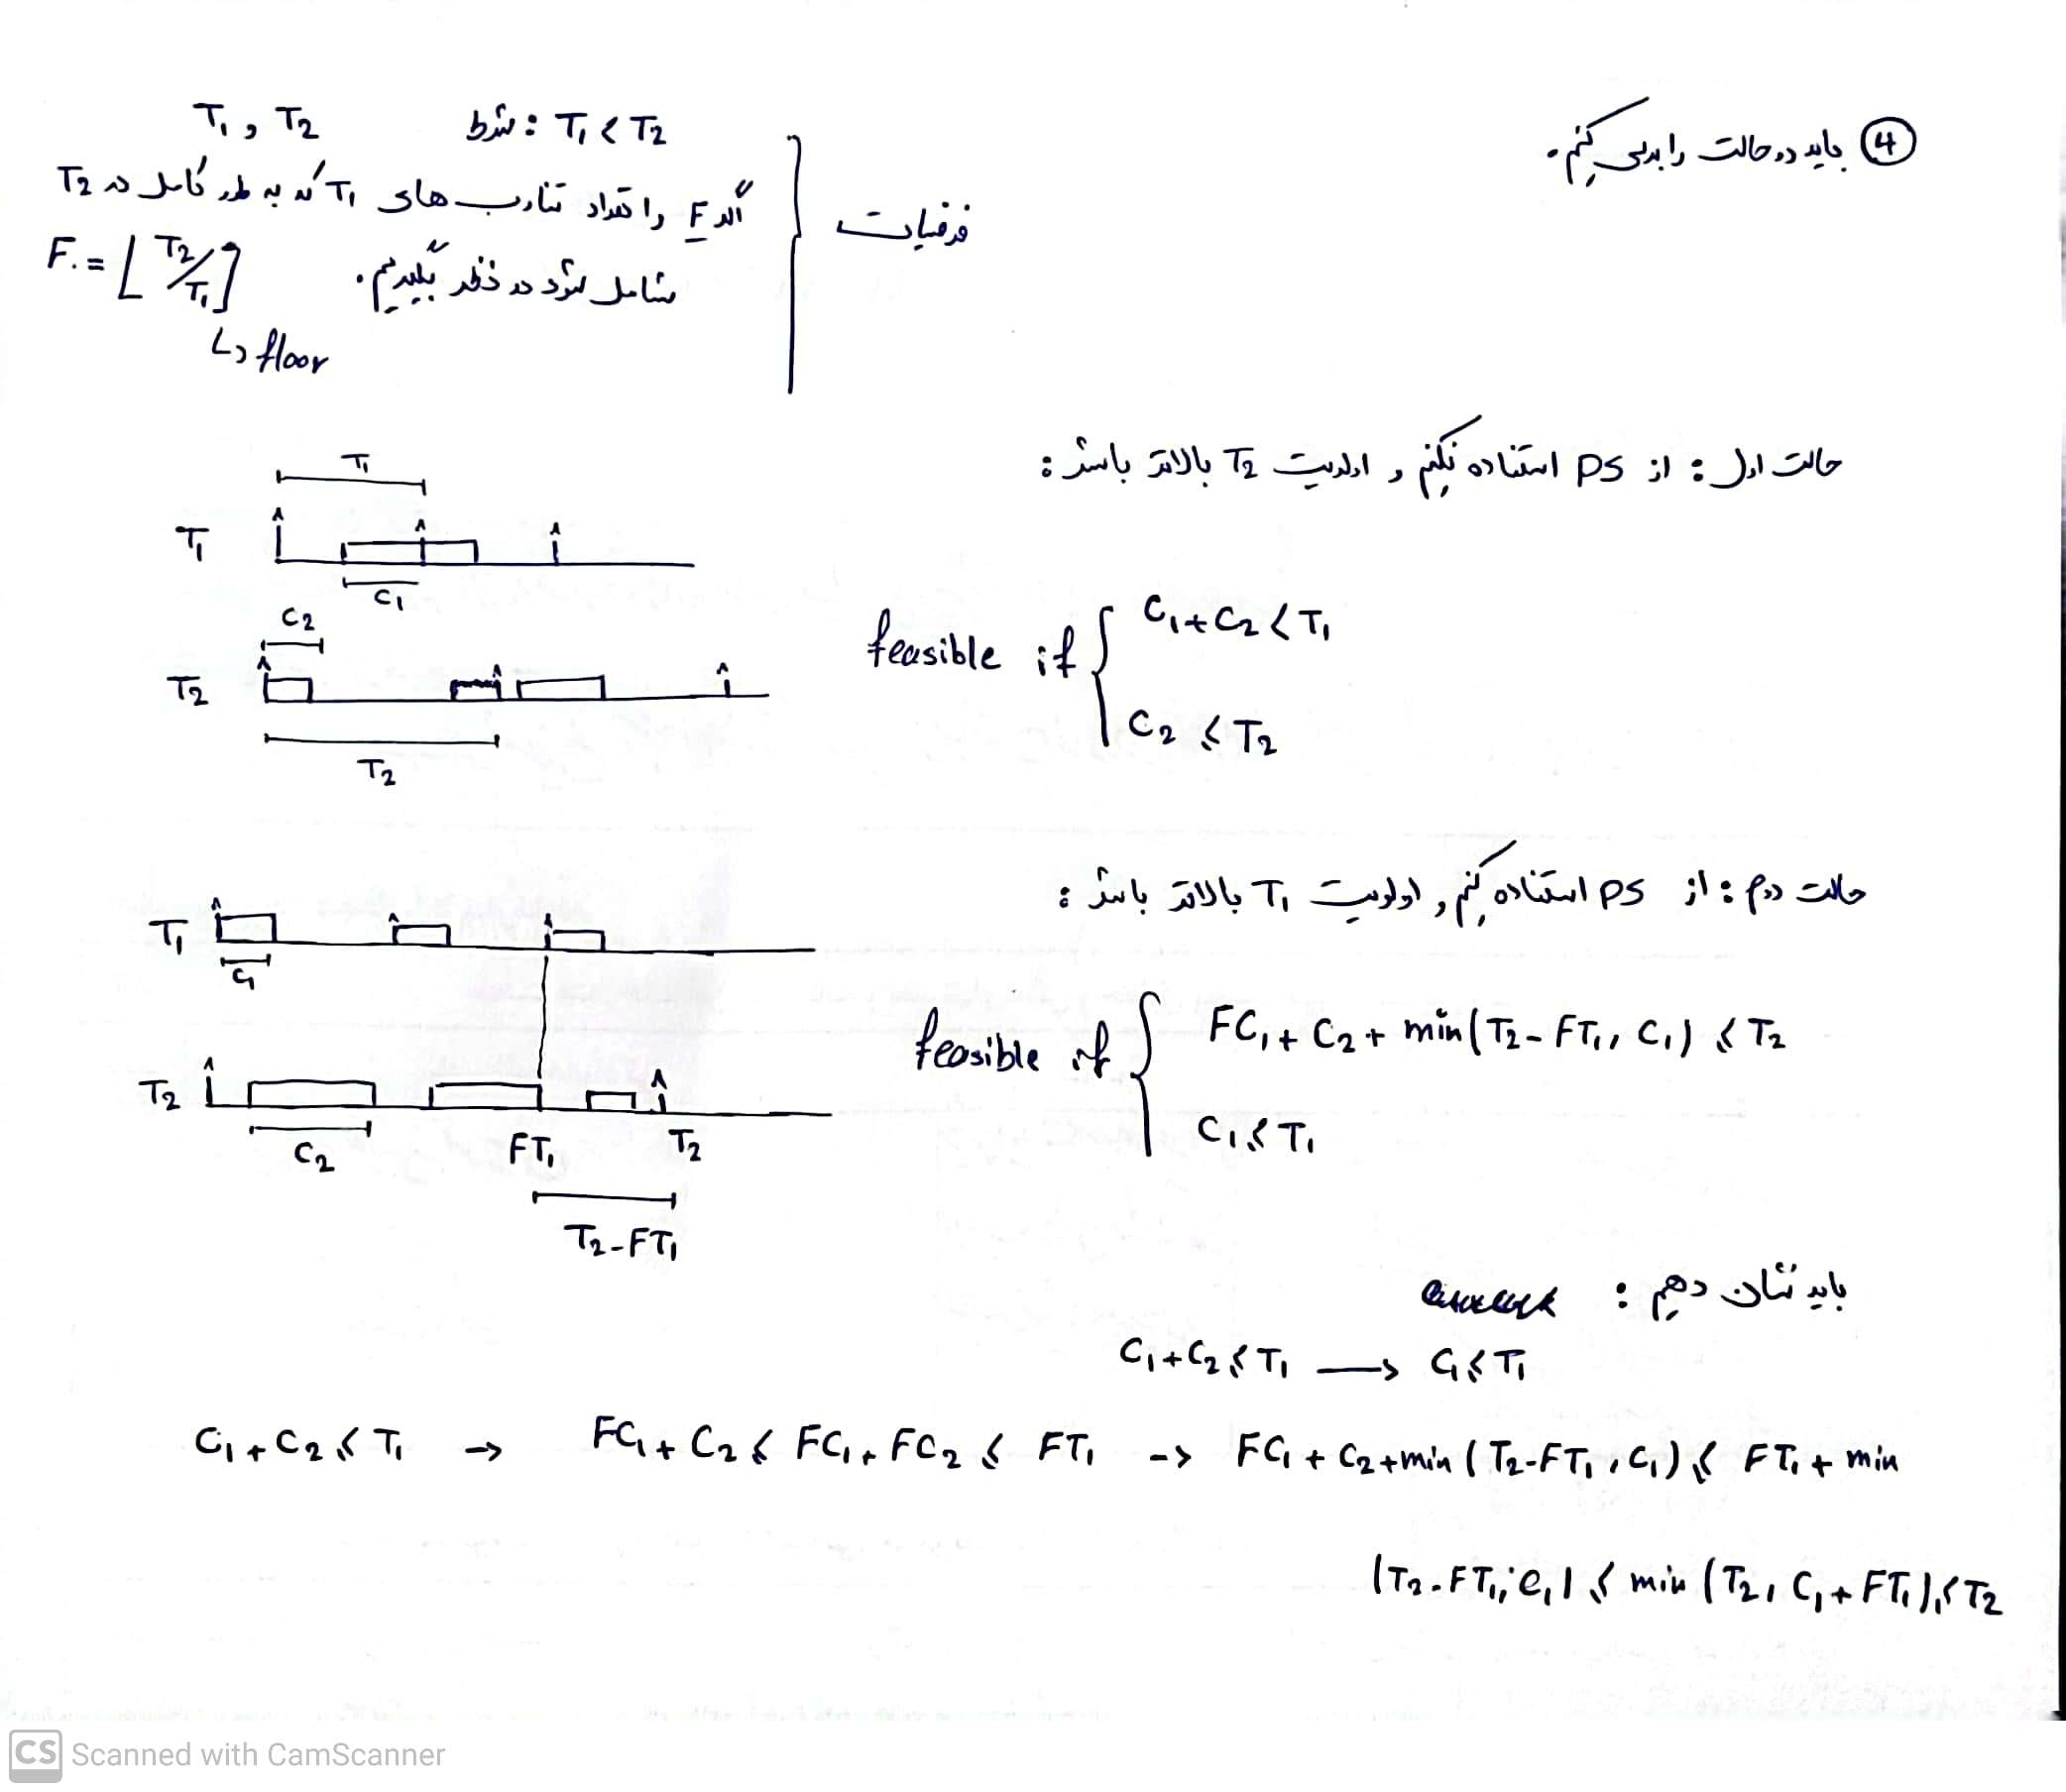 ④ باید دو حالت را بررسی کنیم.
فرضیات
T₁ , T₂ شرط : T₁ < T₂
اگر F را تعداد تناوب های T₁ که به طور کامل در T₂
شامل شود در نظر بگیریم. F = ⌊T₂/T₁⌋
↳ floor
حالت اول : از PS استفاده نکنیم و اولویت T₂ بالاتر باشد :
T₁
T₁
C₁
C₂
T₂
T₂
feasible if { C₁ + C₂ ≤ T₁
C₂ ≤ T₂
حالت دوم : از PS استفاده کنیم و اولویت T₁ بالاتر باشد :
T₁
C₁
T₂
C₂ FT₁ T₂
T₂ - FT₁
feasible if { FC₁ + C₂ + min(T₂ - FT₁, C₁) ≤ T₂
C₁ ≤ T₁
باید نشان دهیم :
C₁ + C₂ ≤ T₁ → C₁ ≤ T₁
C₁ + C₂ ≤ T₁ → FC₁ + C₂ ≤ FC₁ + FC₂ ≤ FT₁ → FC₁ + C₂ + min(T₂ - FT₁, C₁) ≤ FT₁ + min
(T₂ - FT₁, C₁) ≤ min(T₂, C₁ + FT₁) ≤ T₂
CS Scanned with CamScanner